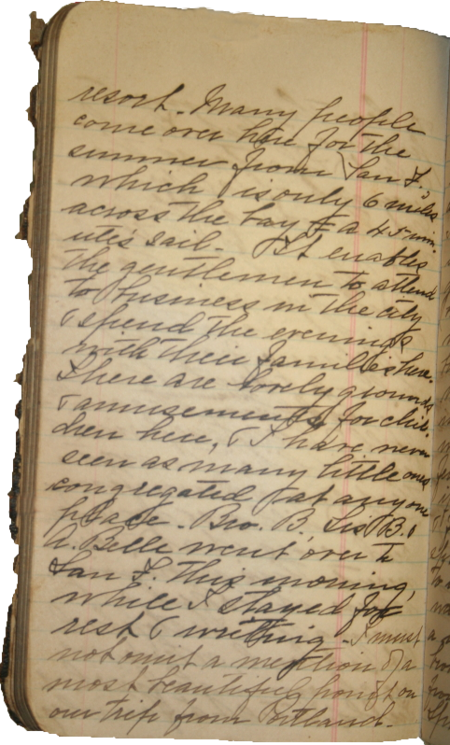 resort. Many people
come over here for the
summer from San F.,
which is only 6 miles
across the bay & a 45-min-
utes sail. It enables
the gentlemen to attend
to business in the city
& spend the evenings
with their families here.
There are lovely grounds
& amusements for chil-
dren here, & I have never
seen as many little ones
congregated at any one
place. Bro. B. Sis B. &
A. Belle went over to
San F. this morning,
while I stayed for
rest & writing. I must
not omit a mention of a
most beautiful on
our trip from Portland.